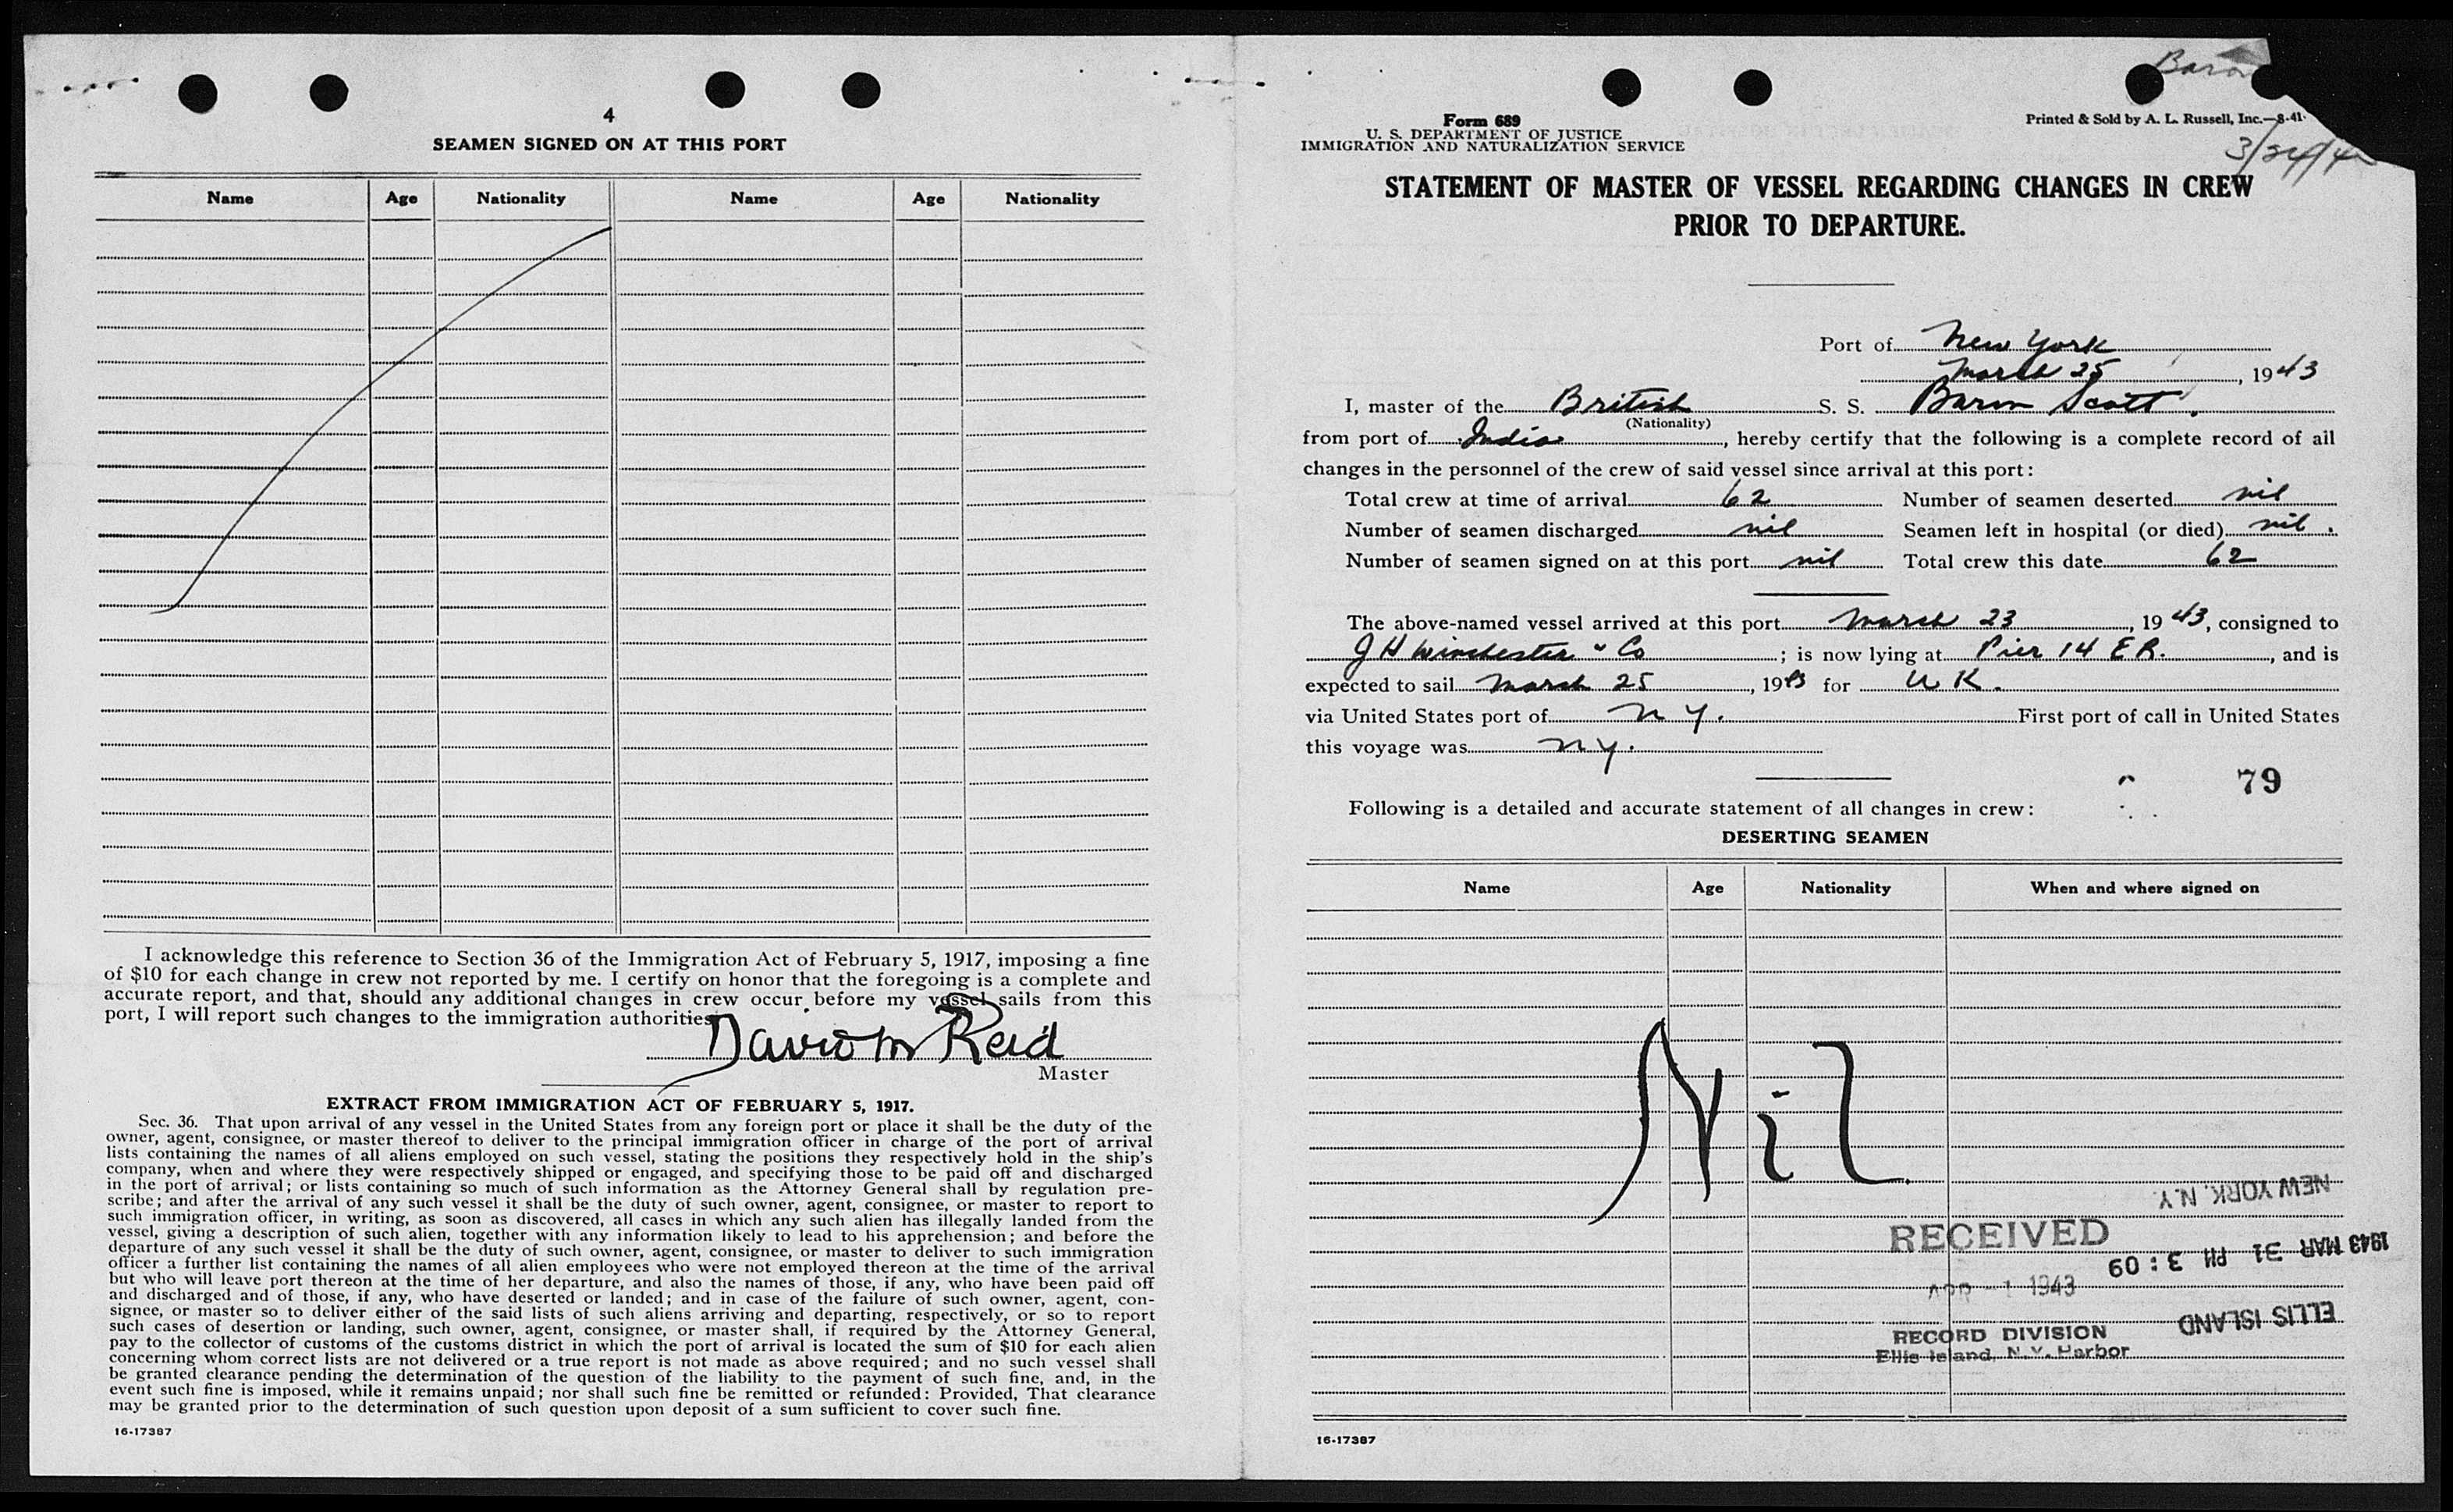 4
SEAMEN SIGNED ON AT THIS PORT
Name Age Nationality Name Age Nationality
I acknowledge this reference to Section 36 of the Immigration Act of February 5, 1917, imposing a fine
of $10 for each change in crew not reported by me. I certify on honor that the foregoing is a complete and
accurate report, and that, should any additional changes in crew occur before my vessel sails from this
port, I will report such changes to the immigration authorities
David M Reid
Master
EXTRACT FROM IMMIGRATION ACT OF FEBRUARY 5, 1917.
Sec. 36. That upon arrival of any vessel in the United States from any foreign port or place it shall be the duty of the
owner, agent, consignee, or master thereof to deliver to the principal immigration officer in charge of the port of arrival
lists containing the names of all aliens employed on such vessel, stating the positions they respectively hold in the ship's
company, when and where they were respectively shipped or engaged, and specifying those to be paid off and discharged
in the port of arrival; or lists containing so much of such information as the Attorney General shall by regulation pre-
scribe; and after the arrival of any such vessel it shall be the duty of such owner, agent, consignee, or master to report to
such immigration officer, in writing, as soon as discovered, all cases in which any such alien has illegally landed from the
vessel, giving a description of such alien, together with any information likely to lead to his apprehension; and before the
departure of any such vessel it shall be the duty of such owner, agent, consignee, or master to deliver to such immigration
officer a further list containing the names of all alien employees who were not employed thereon at the time of the arrival
but who will leave port thereon at the time of her departure, and also the names of those, if any, who have been paid off
and discharged and of those, if any, who have deserted or landed; and in case of the failure of such owner, agent, con-
signee, or master so to deliver either of the said lists of such aliens arriving and departing, respectively, or so to report
such cases of desertion or landing, such owner, agent, consignee, or master shall, if required by the Attorney General,
pay to the collector of customs of the customs district in which the port of arrival is located the sum of $10 for each alien
concerning whom correct lists are not delivered or a true report is not made as above required; and no such vessel shall
be granted clearance pending the determination of the question of the liability to the payment of such fine, and, in the
event such fine is imposed, while it remains unpaid; nor shall such fine be remitted or refunded: Provided, That clearance
may be granted prior to the determination of such question upon deposit of a sum sufficient to cover such fine.
16-17387
Baron
Form 689
U. S. DEPARTMENT OF JUSTICE
IMMIGRATION AND NATURALIZATION SERVICE
Printed & Sold by A. L. Russell, Inc.—8-41
STATEMENT OF MASTER OF VESSEL REGARDING CHANGES IN CREW
PRIOR TO DEPARTURE.
Port of New York
March 25, 1943
I, master of the British S. S. Baron Scott.
(Nationality)
from port of India, hereby certify that the following is a complete record of all
changes in the personnel of the crew of said vessel since arrival at this port:
Total crew at time of arrival 62 Number of seamen deserted nil
Number of seamen discharged nil Seamen left in hospital (or died) nil.
Number of seamen signed on at this port nil Total crew this date 62
The above-named vessel arrived at this port March 23, 1943, consigned to
J H Winchester & Co; is now lying at Pier 14 E R., and is
expected to sail March 25, 1943 for U K.
via United States port of N Y. First port of call in United States
this voyage was N Y.
79
Following is a detailed and accurate statement of all changes in crew:
DESERTING SEAMEN
Name Age Nationality When and where signed on
Nil
NEW YORK. N.Y.
RECEIVED
1943 MAR 31 PM 3:09
APR -1 1943
ELLIS ISLAND
RECORD DIVISION
Ellis Island, N.Y. Harbor
16-17387